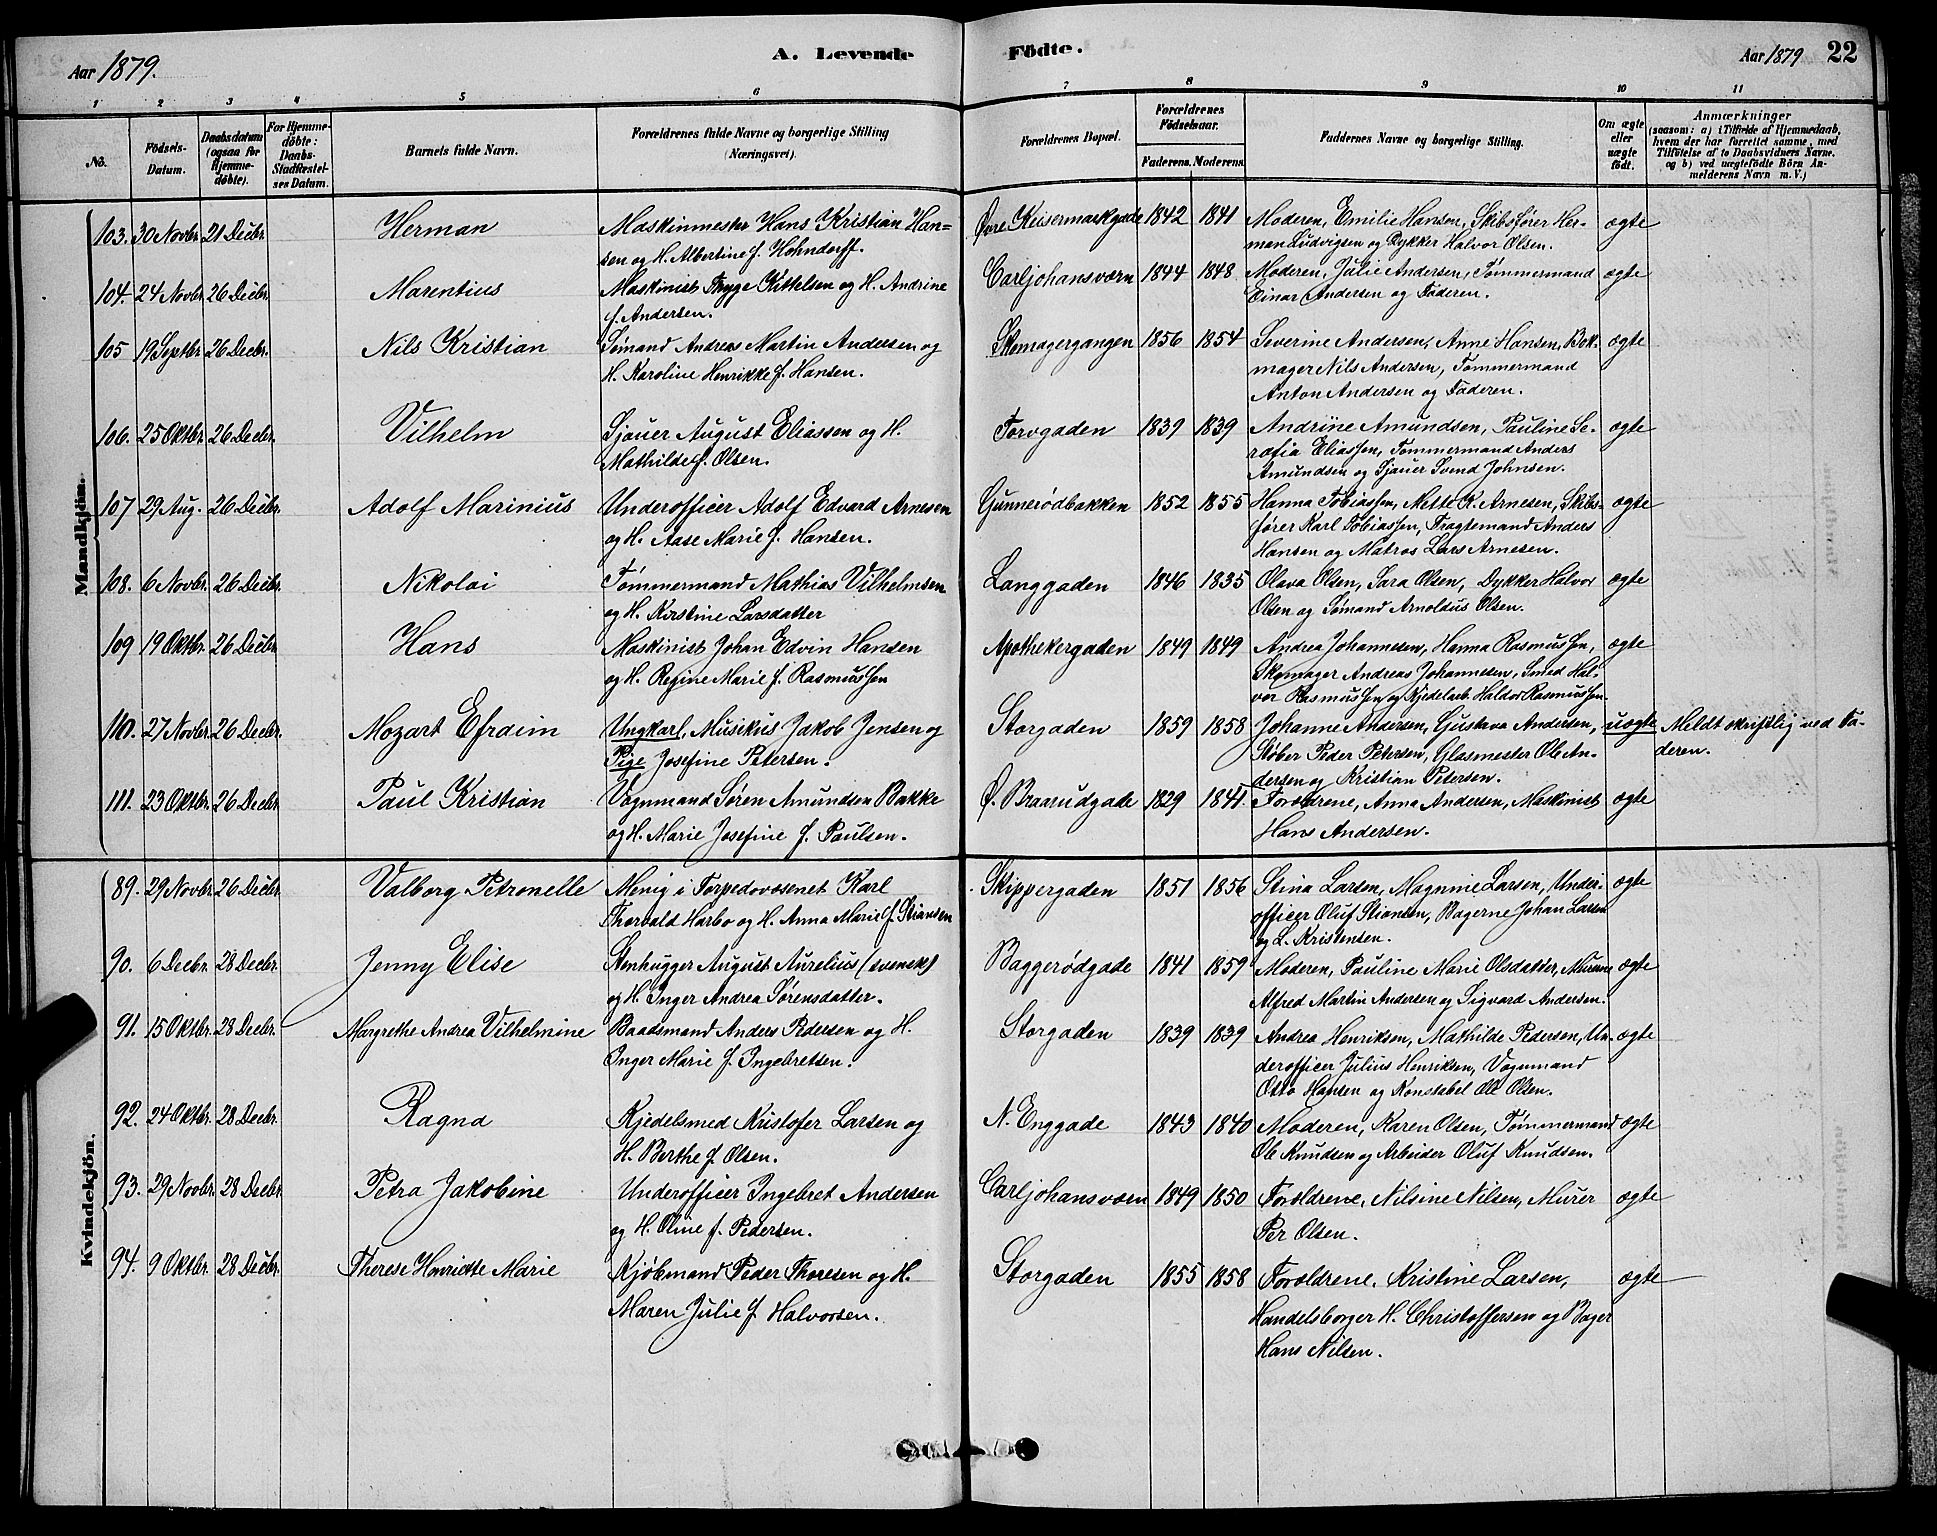 Aar 1879.
A. Levende
Födte.
Aar 1879
22
1 2 3 4 5 6 7 8 9 10 11
No.
Födsels-Datum.
Daabsdatum (ogsaa for Hjemme-döbte).
For Hjemme-döbte: Daabs-Stadfæstel-ses Datum.
Barnets fulde Navn.
Forældrenes fulde Navne og borgerlige Stilling (Næringsvei).
Forældrenes Bopæl.
Forældrenes Födselsaar.
Faderens. Moderens.
Faddernes Navne og borgerlige Stilling.
Om ægte eller uægte födt.
Anmærkninger
(saasom: a) i Tilfælde af Hjemmedaab,
hvem der har forrettet samme, med
Tilföielse af to Daabsvidners Navne,
og b) ved uægtefödte Börn An-
melderens Navn m. V.)
Mandkjön.
103. 30 Novbr. 21 Decbr. Herman Maskinmester Hans Kristian Han= Øvre Keisermarkgade 1842 1841 Moderen, Emilie Hansen, Skibsfører Her- ægte
sen og H. Albertine f. Hohndorff. man Ludvigsen og Dykker Halvor Olsen.
104. 24 Novbr. 26 Decbr. Marentius Maskinist Thyge Kittelsen og H. Andrine Carljohansværn 1844 1848 Moderen, Julie Andersen, Tømmermand ægte
f. Andersen. Einar Andersen og Faderen.
105 19 Septbr. 26 Decbr. Nils Kristian Sømand Andreas Martin Andersen og Skomagergangen 1856 1854 Severine Andersen, Anne Hansen, Bok- ægte
H. Karoline Henrikke f. Hansen. mager Nils Andersen, Tømmermand
Anton Andersen og Faderen.
106. 25 Oktbr. 26 Decbr. Vilhelm Sjauer August Eliassen og H. Torvgaden 1839 1839 Andrine Amundsen, Pauline Se- ægte
Mathilde f. Olsen. rafia Eliassen, Tømmermand Anders
Amundsen og Sjauer Svend Johnsen.
107 29 Aug. 26 Decbr. Adolf Marinius Underofficer Adolf Edvard Arnesen Gunnerødbakken 1852 1855 Hanna Tobiassen, Mette K. Arnesen, Skibs- ægte
og H. Aase Marie f. Hansen. fører Karl Tobiassen, Fragtemand Anders
Hansen og Matros Lars Arnesen.
108. 6 Novbr. 26 Decbr. Nikolai Tømmermand Mathias Vilhelmsen Langgaden 1846 1835 Olava Olsen, Sara Olsen, Dykker Halvor ægte
og H. Kirstine Larsdatter Olsen og Sømand Arnoldus Olsen.
109 19 Oktbr. 26 Decbr. Hans Maskinist Johan Edvin Hansen Apothekergaden 1849 1849 Andrea Johannesen, Hanna Rasmussen, ægte
og H. Regine Marie f. Rasmussen Skomager Andreas Johannesen, Smed Hal-
vor Rasmussen og Kjedelarb. Haldor Rasmussen.
110. 27 Novbr. 26 Decbr. Mozart Efraim Ungkarl, Musikus Jakob Jensen og Storgaden 1859 1858 Johanne Andersen, Gustava Andersen, uægte Meldt skriftlig ved Fa-
Pige Josefine Petersen. Støber Peder Petersen, Glasmester Ole An- deren.
dersen og Kristian Petersen.
111. 23 Oktbr. 26 Decbr. Paul Kristian Vognmand Søren Amundsen Bakke Ø. Braarudgade 1829 1841. Forældrene, Anna Andersen, Maskinist ægte
og H. Marie Josefine f. Paulsen. Hans Andersen.
Kvindekjön.
89. 29 Novbr. 26 Decbr. Valborg Petronelle Menig i Torpedovæsenet Karl Skippergaden 1851 1856 Stina Larsen, Magnine Larsen, Under- ægte
Thorvald Harbo og H. Anna Marie f. Stiansen officer Oluf Stiansen, Bagerne Johan Larsen
og L. Kristensen.
90. 6 Decbr. 28 Decbr. Jenny Elise Stenhugger August Aurelius (svensk) Baggerødgade 1841 1859 Moderen, Pauline Marie Olsdatter, Murerne ægte
og H. Inger Andrea Sørensdatter. Alfred Martin Andersen og Sigvard Andersen.
91. 15 Oktbr. 28 Decbr. Margrethe Andrea Vilhelmine Baadsmand Anders Pedersen og H. Storgaden 1839 1839 Andrea Henriksen, Mathilde Pedersen, Un- ægte
Inger Marie f. Ingebretsen. derofficer Julius Henriksen, Vognmand
Otto Hansen og Konstabel Ole Olsen.
92. 24 Oktbr. 28 Decbr. Ragna Kjedelsmed Kristofer Larsen og N. Enggade 1843 1840 Moderen, Karen Olsen, Tømmermand ægte
H. Berthe f. Olsen. Ole Knudsen og Arbeider Oluf Knudsen.
93. 29 Novbr. 28 Decbr. Petra Jakobine Underofficer Ingebret Andersen Carljohansværn 1849 1850 Forældrene, Nilsine Nilsen, Murer ægte
og H. Oline f. Pedersen. Per Olsen.
94. 9 Oktbr. 28 Decbr. Therese Henriette Marie Kjøbmand Peder Thoresen og H. Storgaden 1855 1858 Forældrene, Kristine Larsen, ægte
Maren Julie f. Halvorsen. Handelsborger H. Christoffersen og Bager
Hans Nilsen.